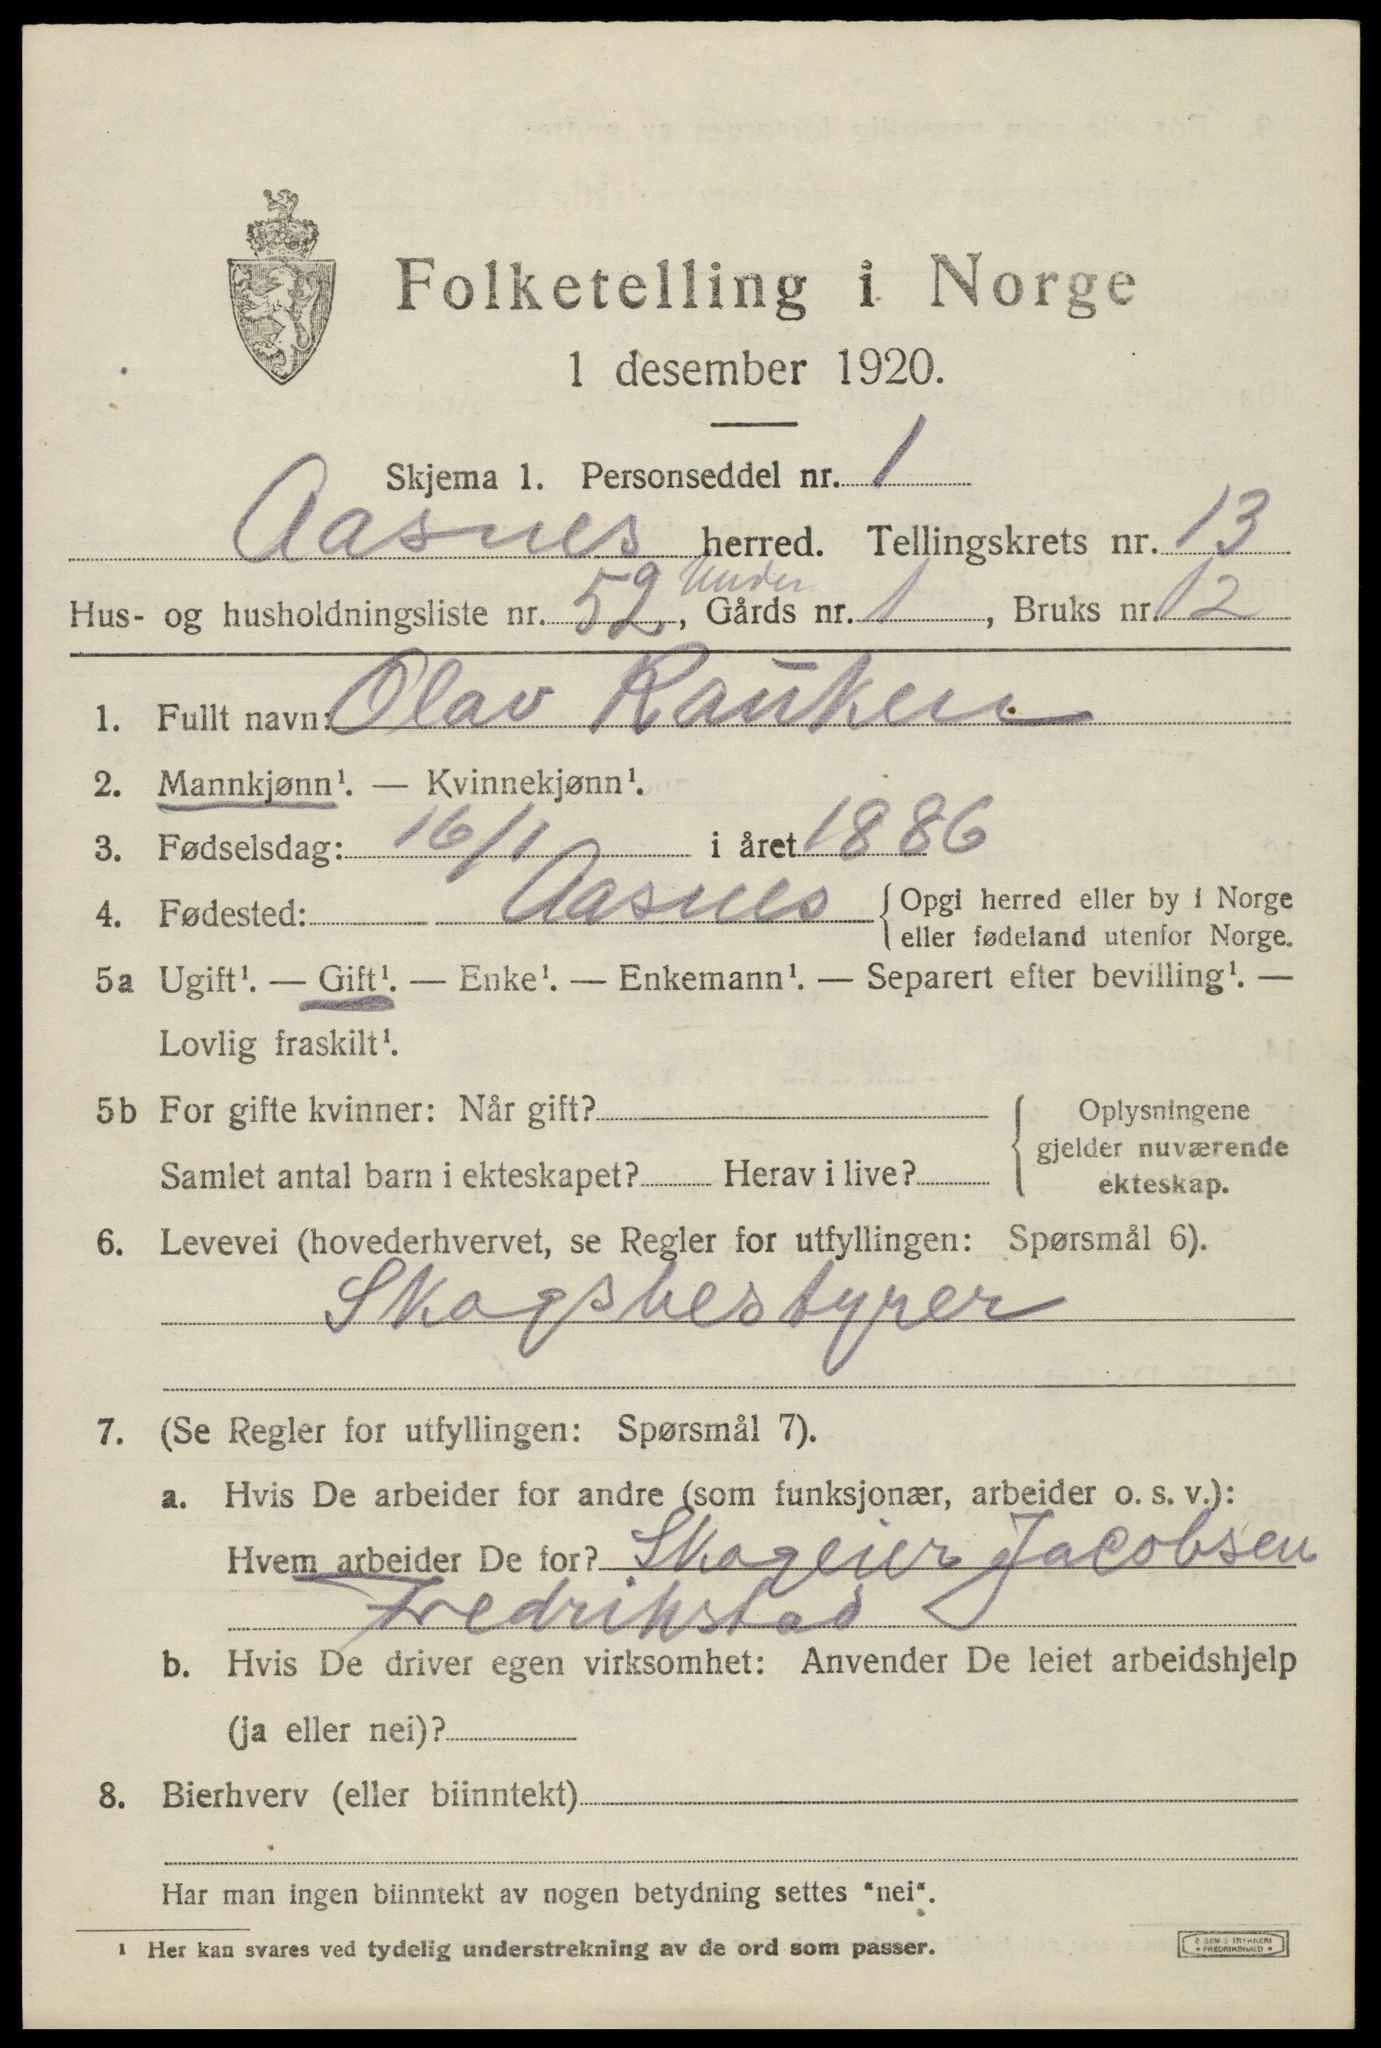 Folketelling i Norge
1 desember 1920.
Skjema 1. Personseddel nr. 1
Aasnes herred. Tellingskrets nr. 13
Under
Hus- og husholdningsliste nr. 52, Gårds nr. 1, Bruks nr. 12
1. Fullt navn: Olav Rauken
2. Mannkjønn¹. — Kvinnekjønn¹.
3. Fødselsdag: 16/1 i året 1886
4. Fødested: Aasnes {Opgi herred eller by i Norge
eller fødeland utenfor Norge.
5a Ugift¹. — Gift¹. — Enke¹. — Enkemann¹. — Separert efter bevilling¹. —
Lovlig fraskilt¹.
5b For gifte kvinner: Når gift?
Samlet antal barn i ekteskapet? Herav i live?
Oplysningene
gjelder nuværende
ekteskap.
6. Levevei (hovederhvervet, se Regler for utfyllingen: Spørsmål 6).
Skogsbestyrer
7. (Se Regler for utfyllingen: Spørsmål 7).
a. Hvis De arbeider for andre (som funksjonær, arbeider o. s. v.):
Hvem arbeider De for? Skogeier Jacobsen
Fredrikstad
b. Hvis De driver egen virksomhet: Anvender De leiet arbeidshjelp
(ja eller nei)?
8. Bierhverv (eller biinntekt)
Har man ingen biinntekt av nogen betydning settes "nei".
¹ Her kan svares ved tydelig understrekning av de ord som passer.
TRYKKERI
FREDRIKSHALD